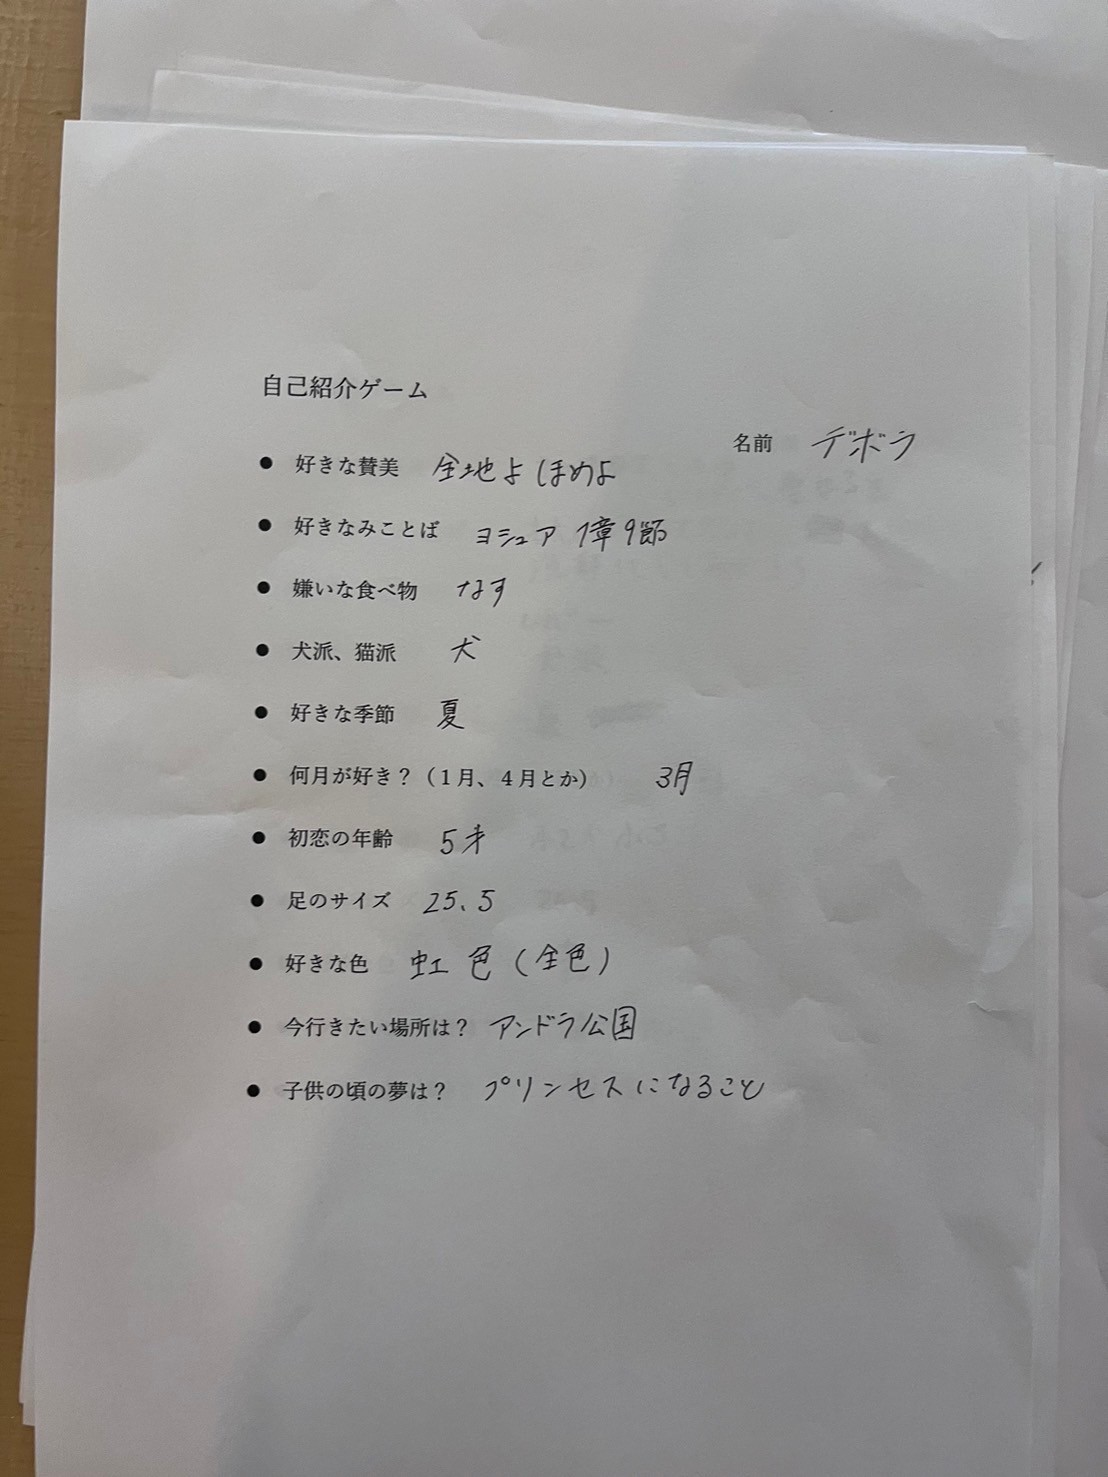 自己紹介ゲーム
名前 デボラ
● 好きな賛美 全地よ ほめよ
● 好きなみことば ヨシュア 1章9節
● 嫌いな食べ物 なす
● 犬派、猫派 犬
● 好きな季節 夏
● 何月が好き？（１月、４月とか） 3月
● 初恋の年齢 5才
● 足のサイズ 25.5
● 好きな色 虹色（全色）
● 今行きたい場所は？ アンドラ公国
● 子供の頃の夢は？ プリンセスになること